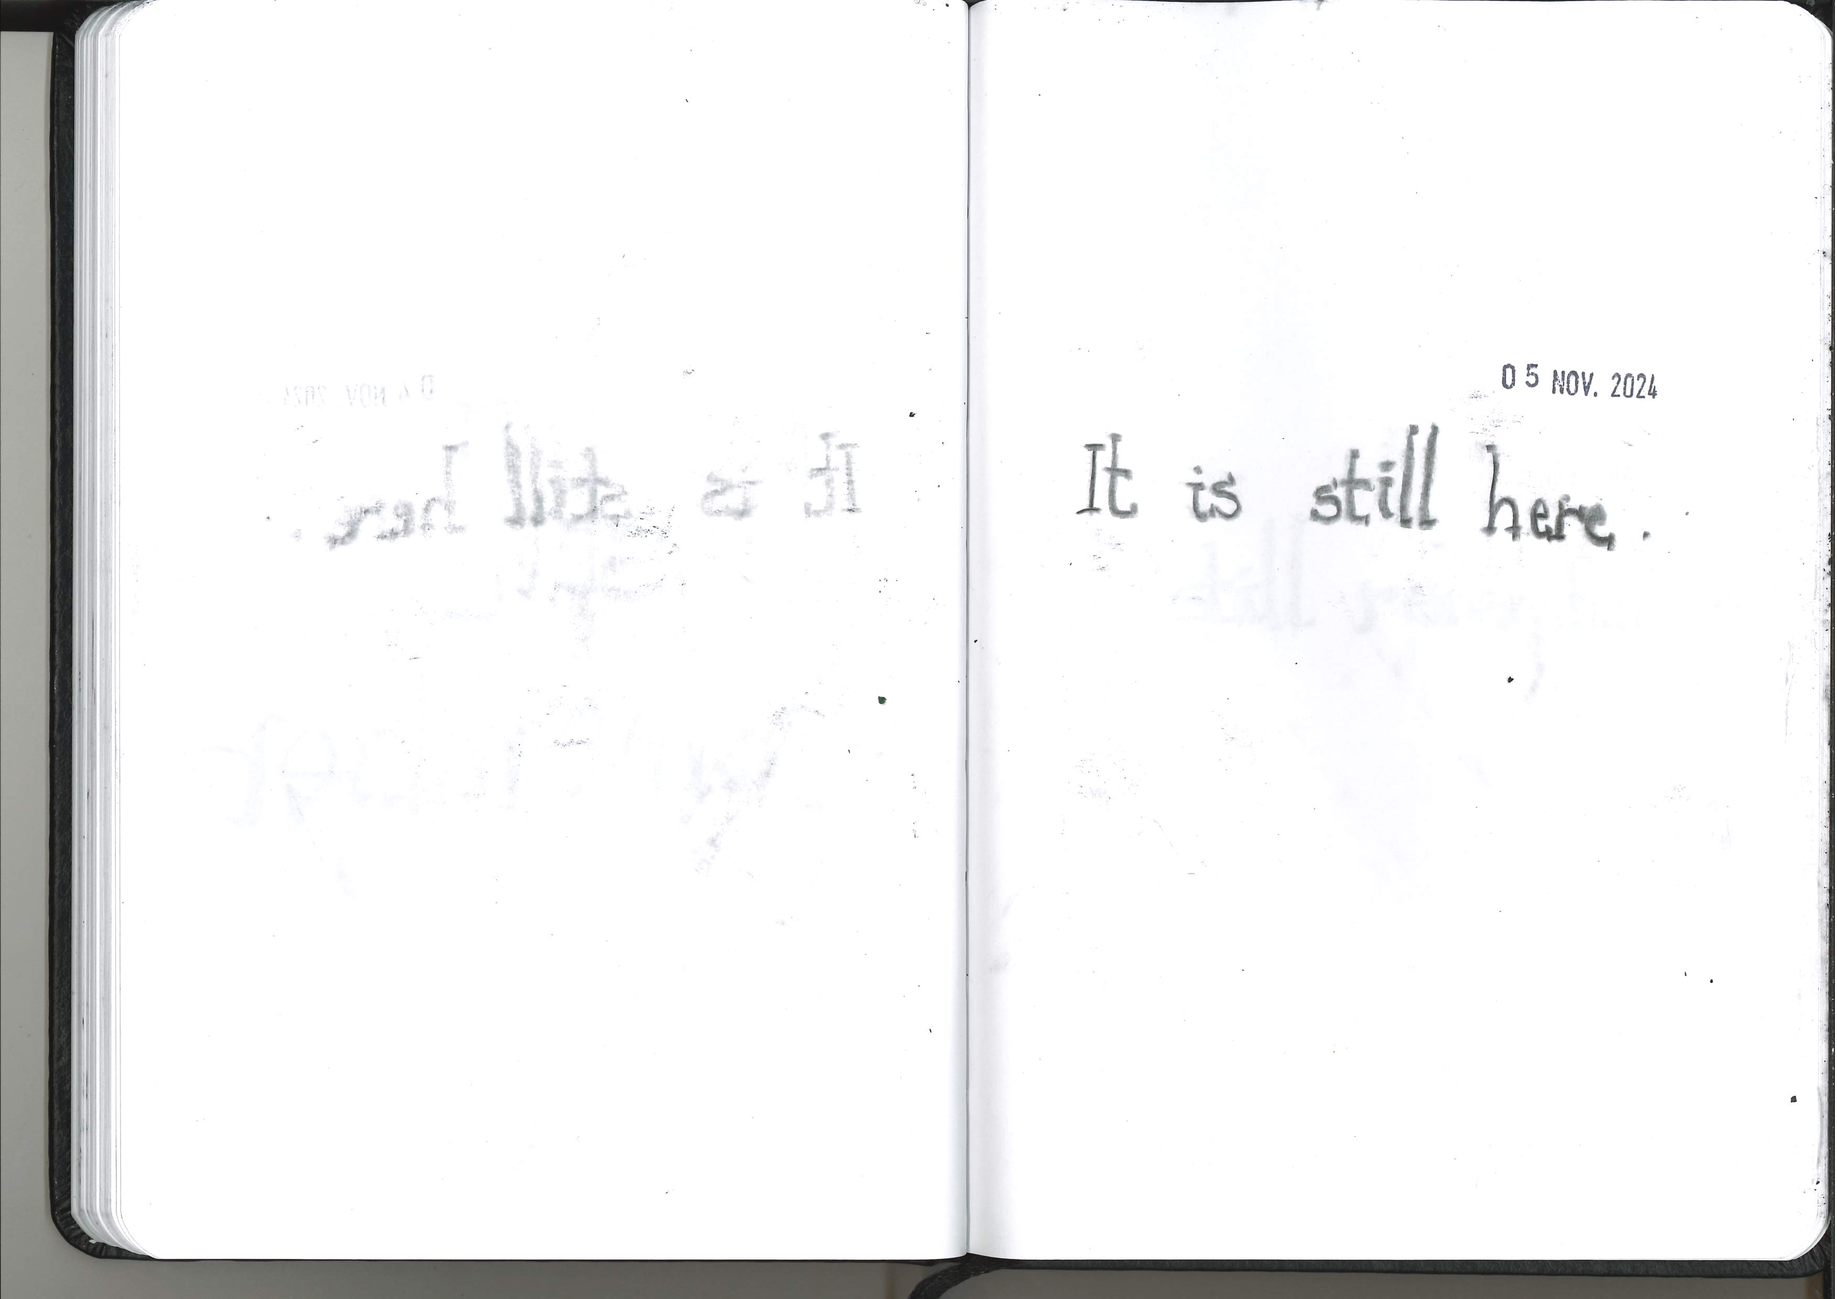 05 NOV. 2024
It is still here.